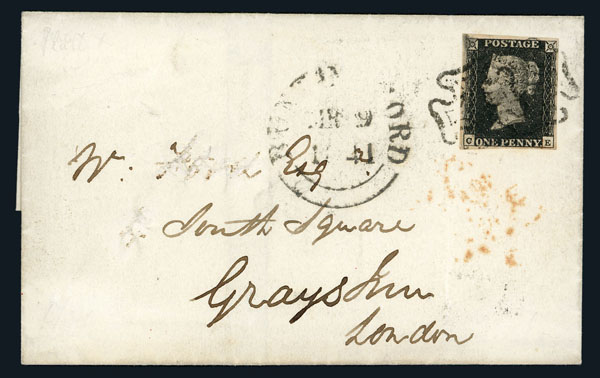 POSTAGE
C ONE PENNY E
ORD
9
41
W. Esq
South Square
Grays Inn
London